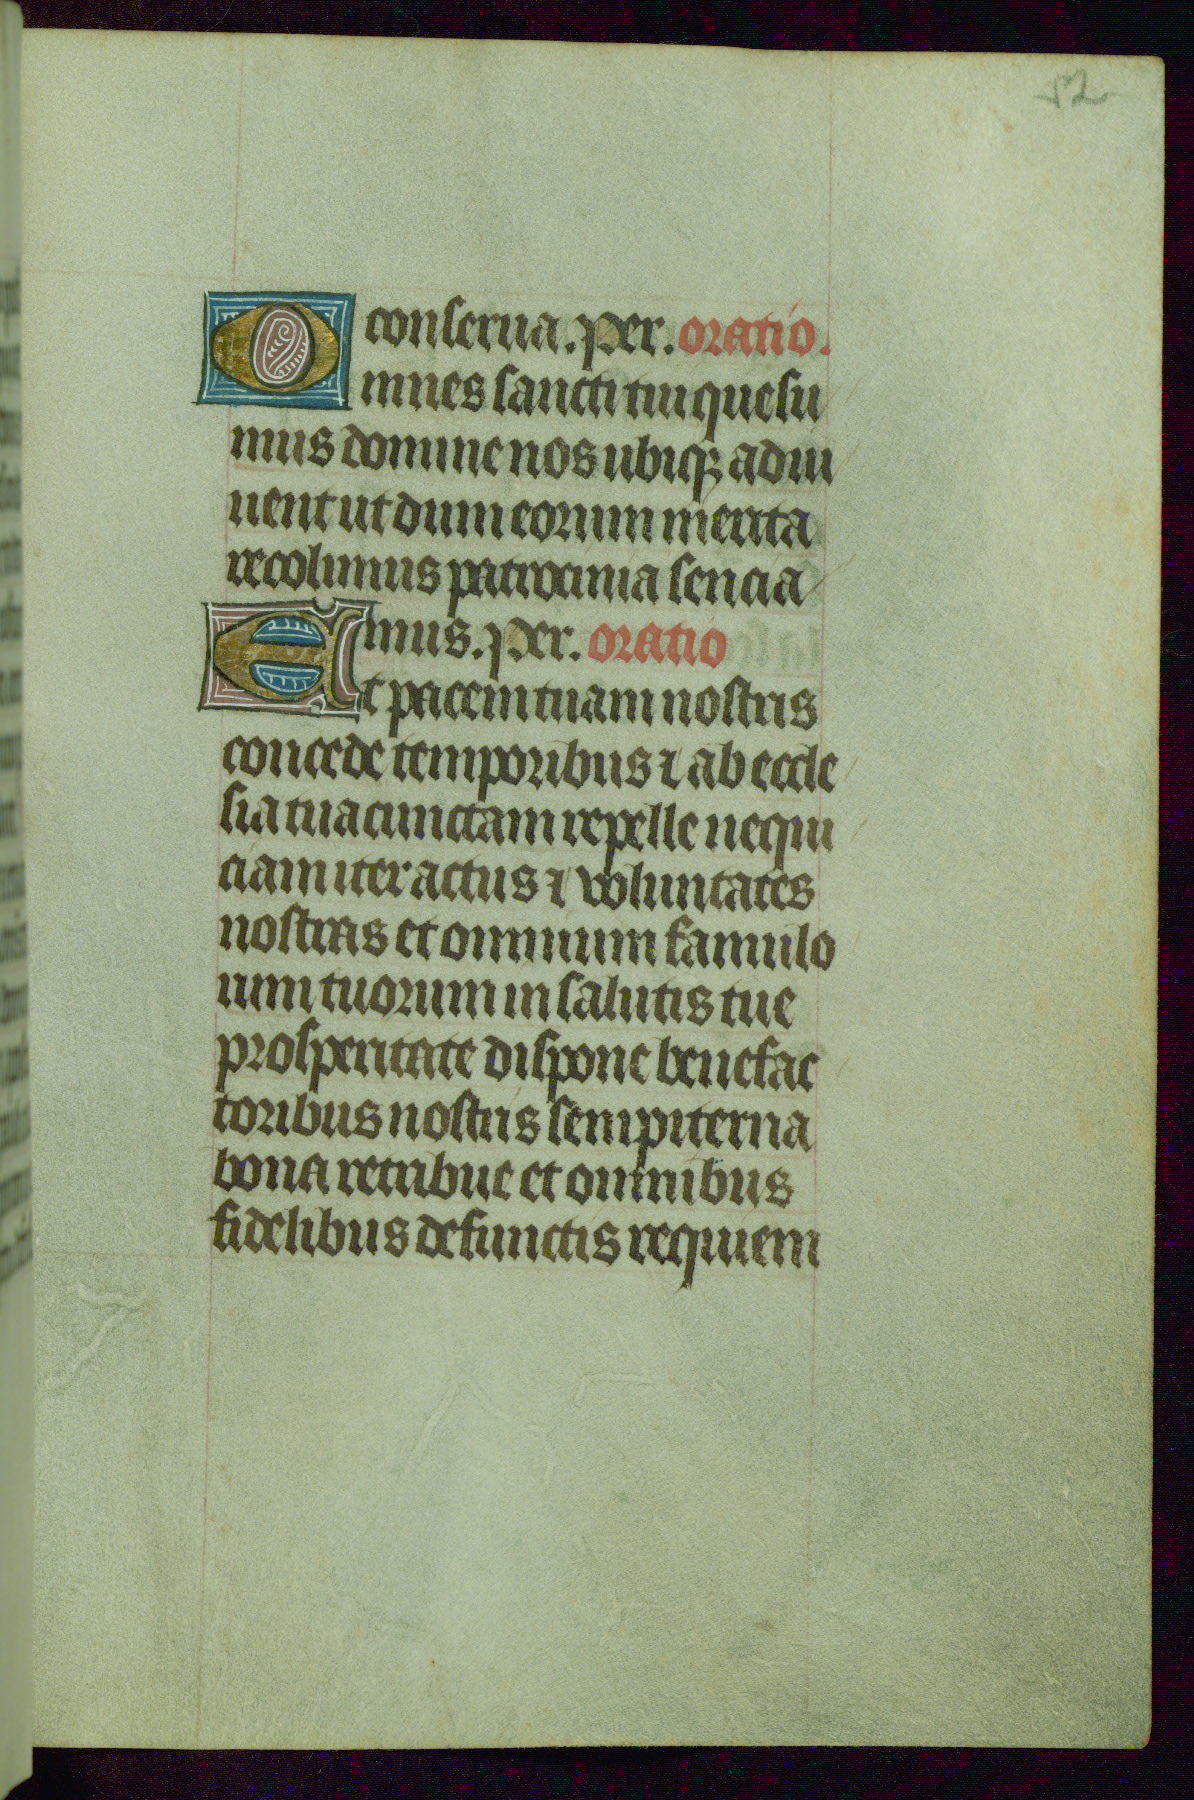 52
conserua. per. oratio.
Omnes sancti tui quesu
mus domine nos ubiqꝫ adiu
uent ut dum eorum merita
recolimus patrocinia sencia
mus. per. oratio
Et pacem tuam nostris
concede temporibus ⁊ ab eccle
sia tua cunctam repelle nequi
ciam iter actus ⁊ voluntates
nostras et omnium famulo
rum tuorum in salutis tue
prosperitate dispone benefac
toribus nostris sempiterna
bona retribue et omnibus
fidelibus defunctis requiem